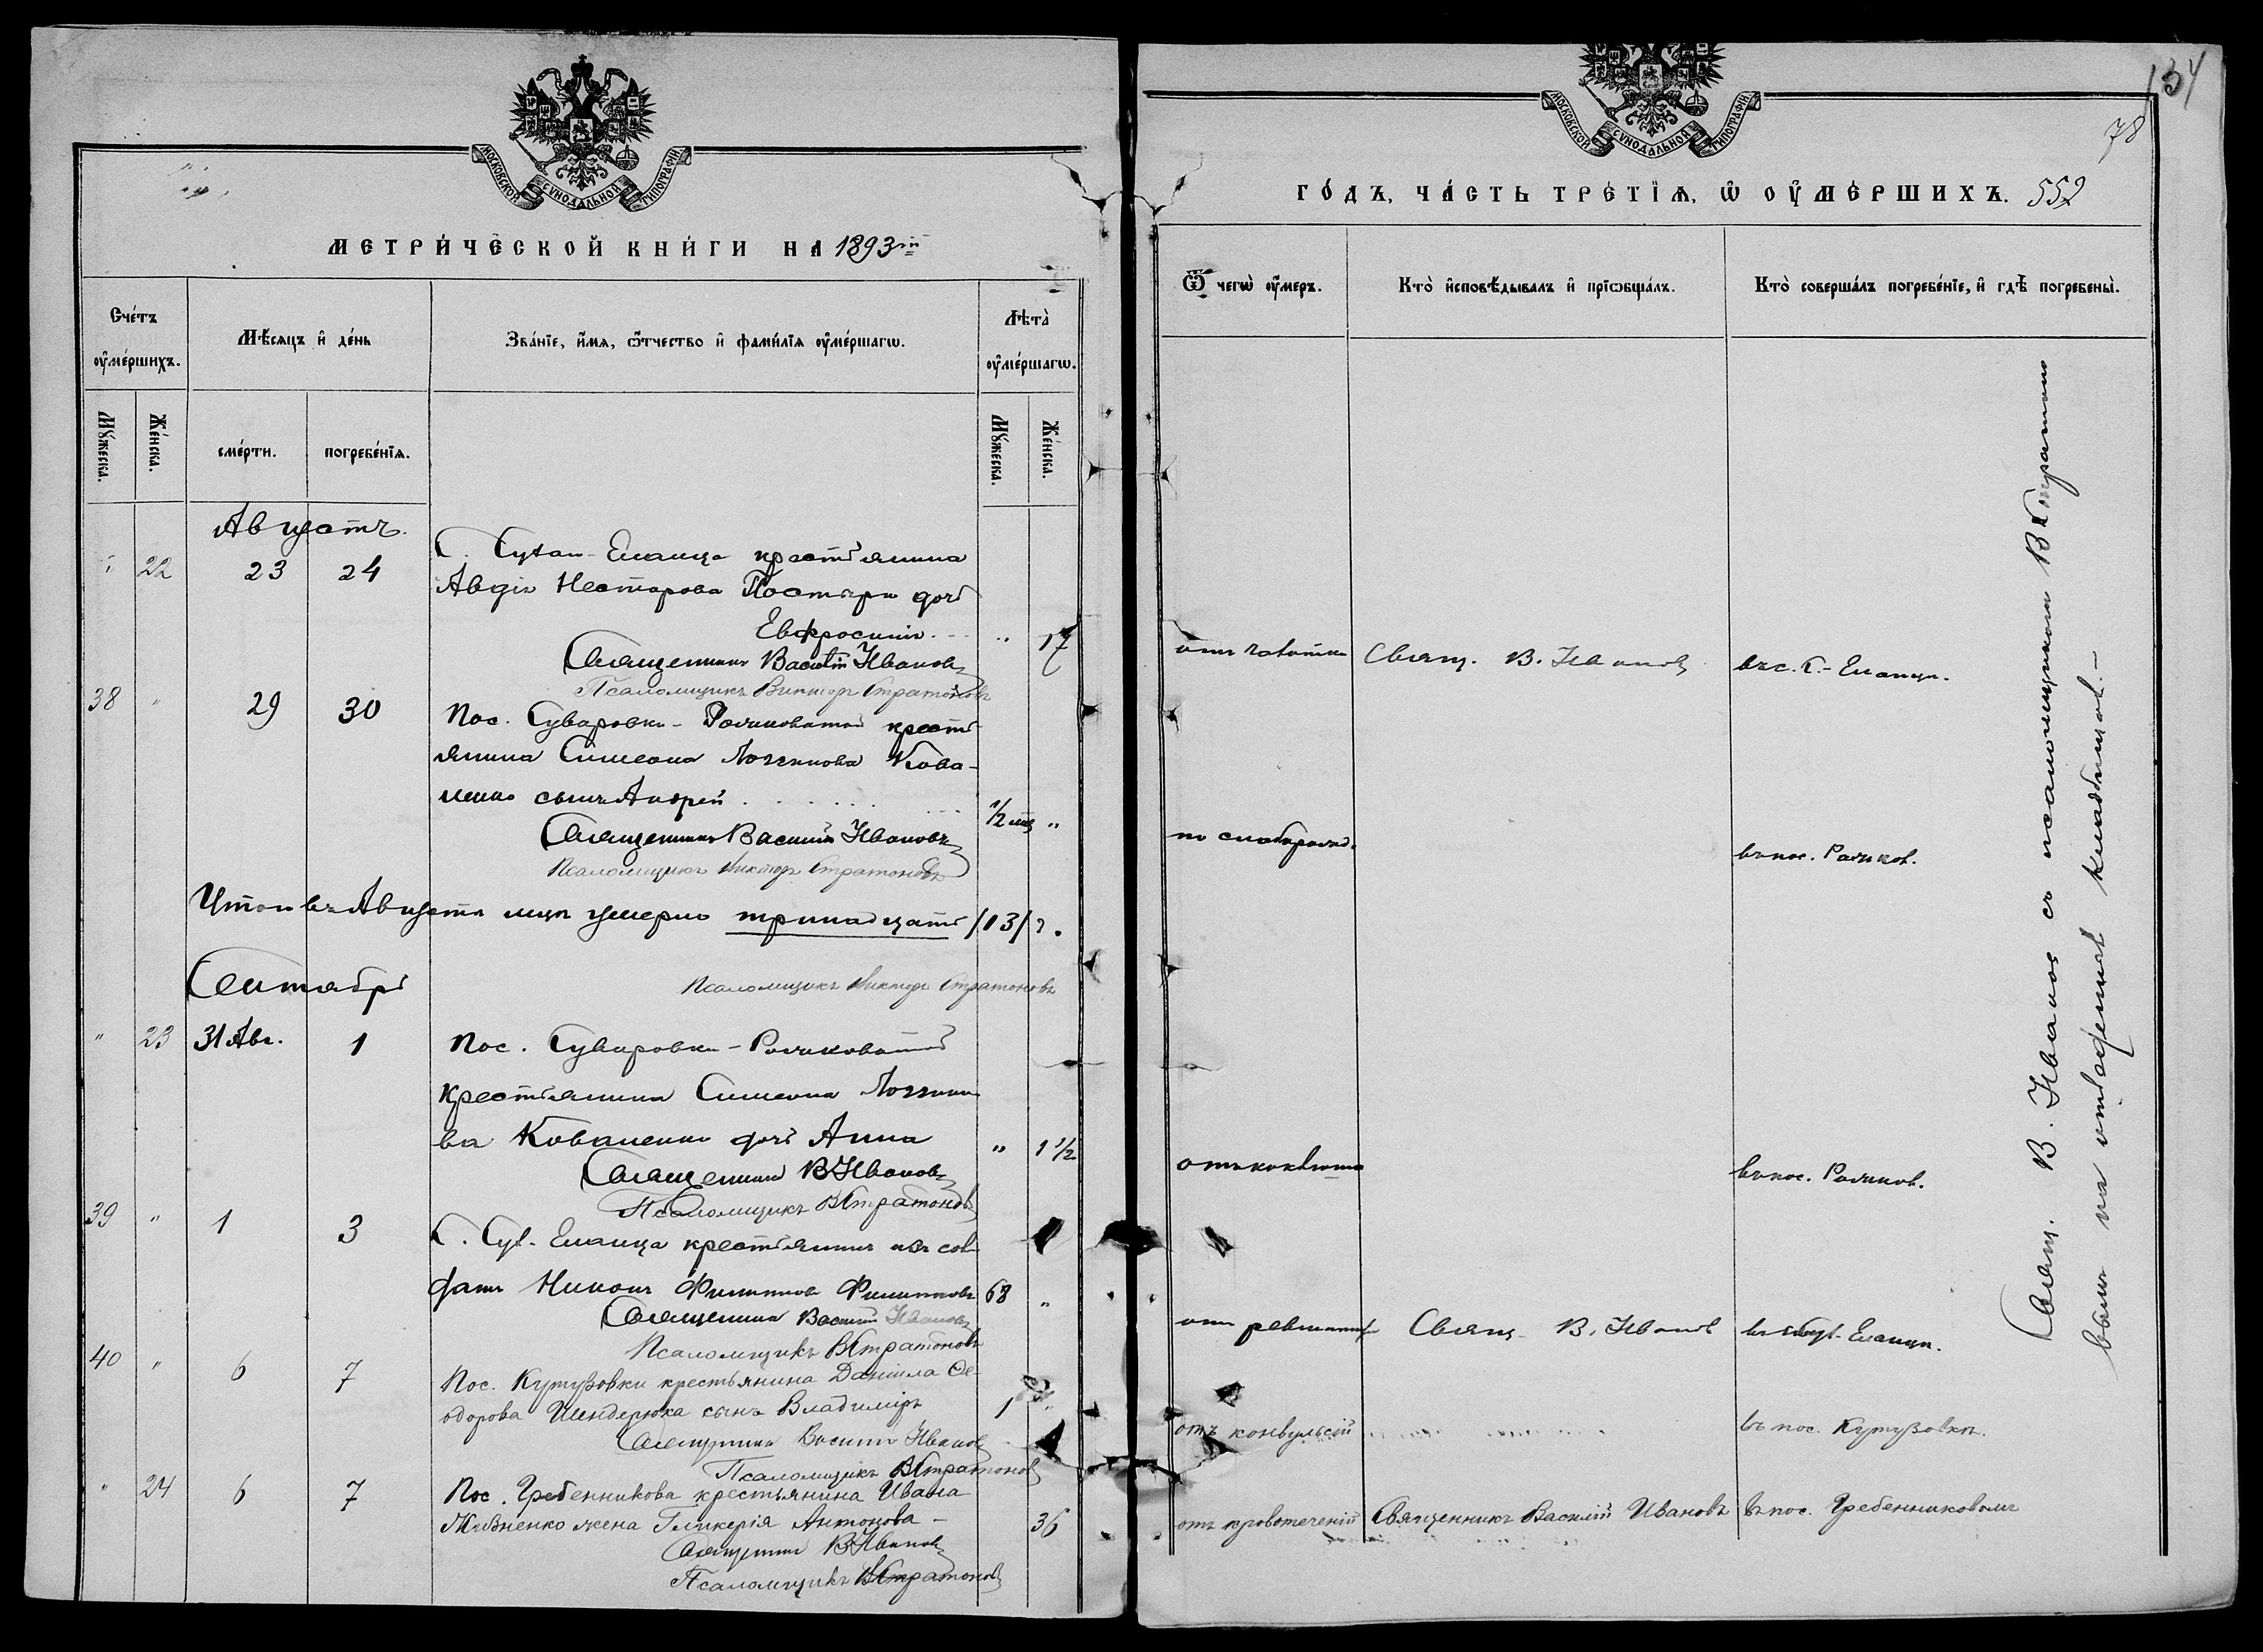 МОСКОВСКОЙ СѴНОДАЛЬНОЙ ТИПОГРАФІИ
МЕТРИ́ЧЕСКОЙ КНИ́ГИ НА 1893й
Сче́тъ ᲂу҆ме́ршихъ.
Мѣ́сяцъ и҆ де́нь
Зва́нїе, и҆́мѧ, ѻ҆́тчество и҆ фами́лїѧ ᲂу҆ме́ршагѡ.
Лѣта̀ ᲂу҆ме́ршагѡ.
Мꙋ́жеска.
Же́нска.
сме́рти.
погребе́нїѧ.
Мꙋ́жеска.
Же́нска.
Августъ.
" 22 23 24 С. Еланца крестьянина
Авдія Нестарова дочь
Евфросинія. " 17
Священникъ Василій Ивановъ
Псаломщикъ Викторъ Стратоновъ
38 " 29 30 Пос. Суваровки - крестьянина Симеона Логгинова Кова-
ленко сынъ Андрей 1/2 "
Священникъ Василій Ивановъ
Псаломщикъ Викторъ Стратоновъ
Итого въ Августѣ умерло тринадцать /13/
Сентябрь
Псаломщикъ Викторъ Стратоновъ
" 23 31 Авг. 1 Пос. Суваровки -
крестьянина Симеона Логгино-
ва Коваленко дочь Анна " 1 1/2
Священникъ В Ивановъ
Псаломщикъ В Стратоновъ
39 " 1 3 С. Сув. Еланца крестьянинъ изъ сол-
датъ Никонъ Филиповъ Филиповъ 68 "
Священникъ Василій Ивановъ
Псаломщикъ В Стратоновъ
40 " 6 7 Пос. Кутузовки крестьянина Даніила Ѳе-
одорова Шендерюка сынъ Владиміръ 1 "
Священникъ Василій Ивановъ
Псаломщикъ В Стратоновъ
" 24 6 7 Пос. Гребенникова крестьянина Ивана
Жизненко жена Гликерія Антонова - 36
Священникъ В Ивановъ
Псаломщикъ В Стратоновъ
134
78
МОСКОВСКОЙ СѴНОДАЛЬНОЙ ТИПОГРАФІИ
ГО́ДЪ, ЧА́СТЬ ТРЕ́ТЇѦ, Ѡ҆ ОУ҆МЕ́РШИХЪ. 552
Ѿ чегѡ̀ ᲂу҆́меръ.
Кто̀ и҆сповѣ́дывалъ и҆ прїѡбща́лъ.
Кто̀ соверша́лъ погребе́нїе, и҆ гдѣ̀ погребены̀.
отъ чахотки Свящ. В. Ивановъ въ с. С.- Еланцѣ.
по слаборожд. въ пос. Рочиков.
отъ коклюша въ пос. Рочиков.
отъ ревматизм Свящ. В. Ивановъ въ с. Сув. Еланцѣ.
отъ конвульсій въ пос. Кутузовкѣ.
отъ кровотеченій Священникъ Василій Ивановъ въ пос. Гребенниковомъ
Свящ. В. Ивановъ съ псаломщикомъ В Стратоно
вымъ на отведенномъ кладбищѣ.-